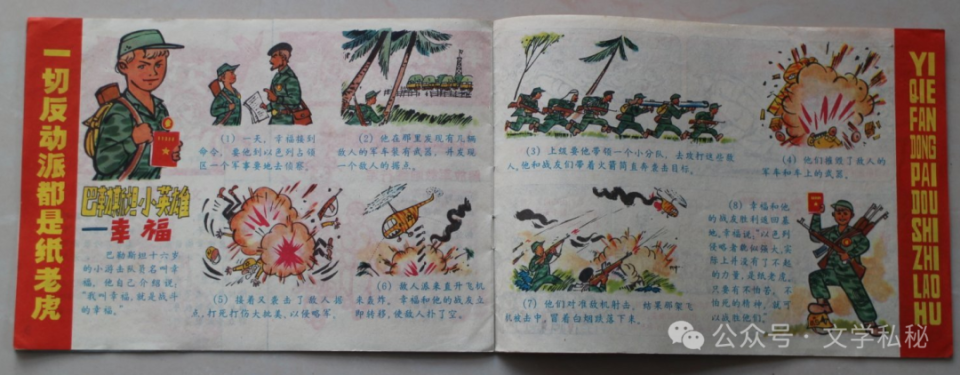 一切反动派都是纸老虎
巴勒斯坦小英雄
—幸福
巴勒斯坦十六岁
的小游击队员名叫幸
福，他自己介绍说：
“我叫幸福，就是战斗
的幸福。”
(1) 一天，幸福接到
命令，要他到以色列占领
区一个军事要地去侦察。
(2) 他在那里发现有几辆
敌人的军车装有武器，并发现
一个敌人的据点。
(3) 上级要他带领一个小分队，去攻打这些敌
人，他和战友们带着火箭筒直奔袭击目标。
(4) 他们摧毁了敌人的
军车和车上的武器。
(5) 接着又袭击了敌人据
点，打死打伤大批美、以侵略军。
(6) 敌人派来直升飞机
来轰炸。幸福和他的战友立
即转移，使敌人扑了空。
(7) 他们对准敌机射击，结果那架飞
机被击中，冒着白烟跌落下来。
(8) 幸福和他
的战友胜利返回基
地，幸福说：“以色列
侵略者貌似强大，实
际上并没有了不起
的力量，是纸老虎，
只要有不怕苦、不
怕死的精神，就可
以战胜他们。”
YI
QIE
FAN
DONG
PAI
DOU
SHI
ZHI
LAO
HU
公众号·文学私秘